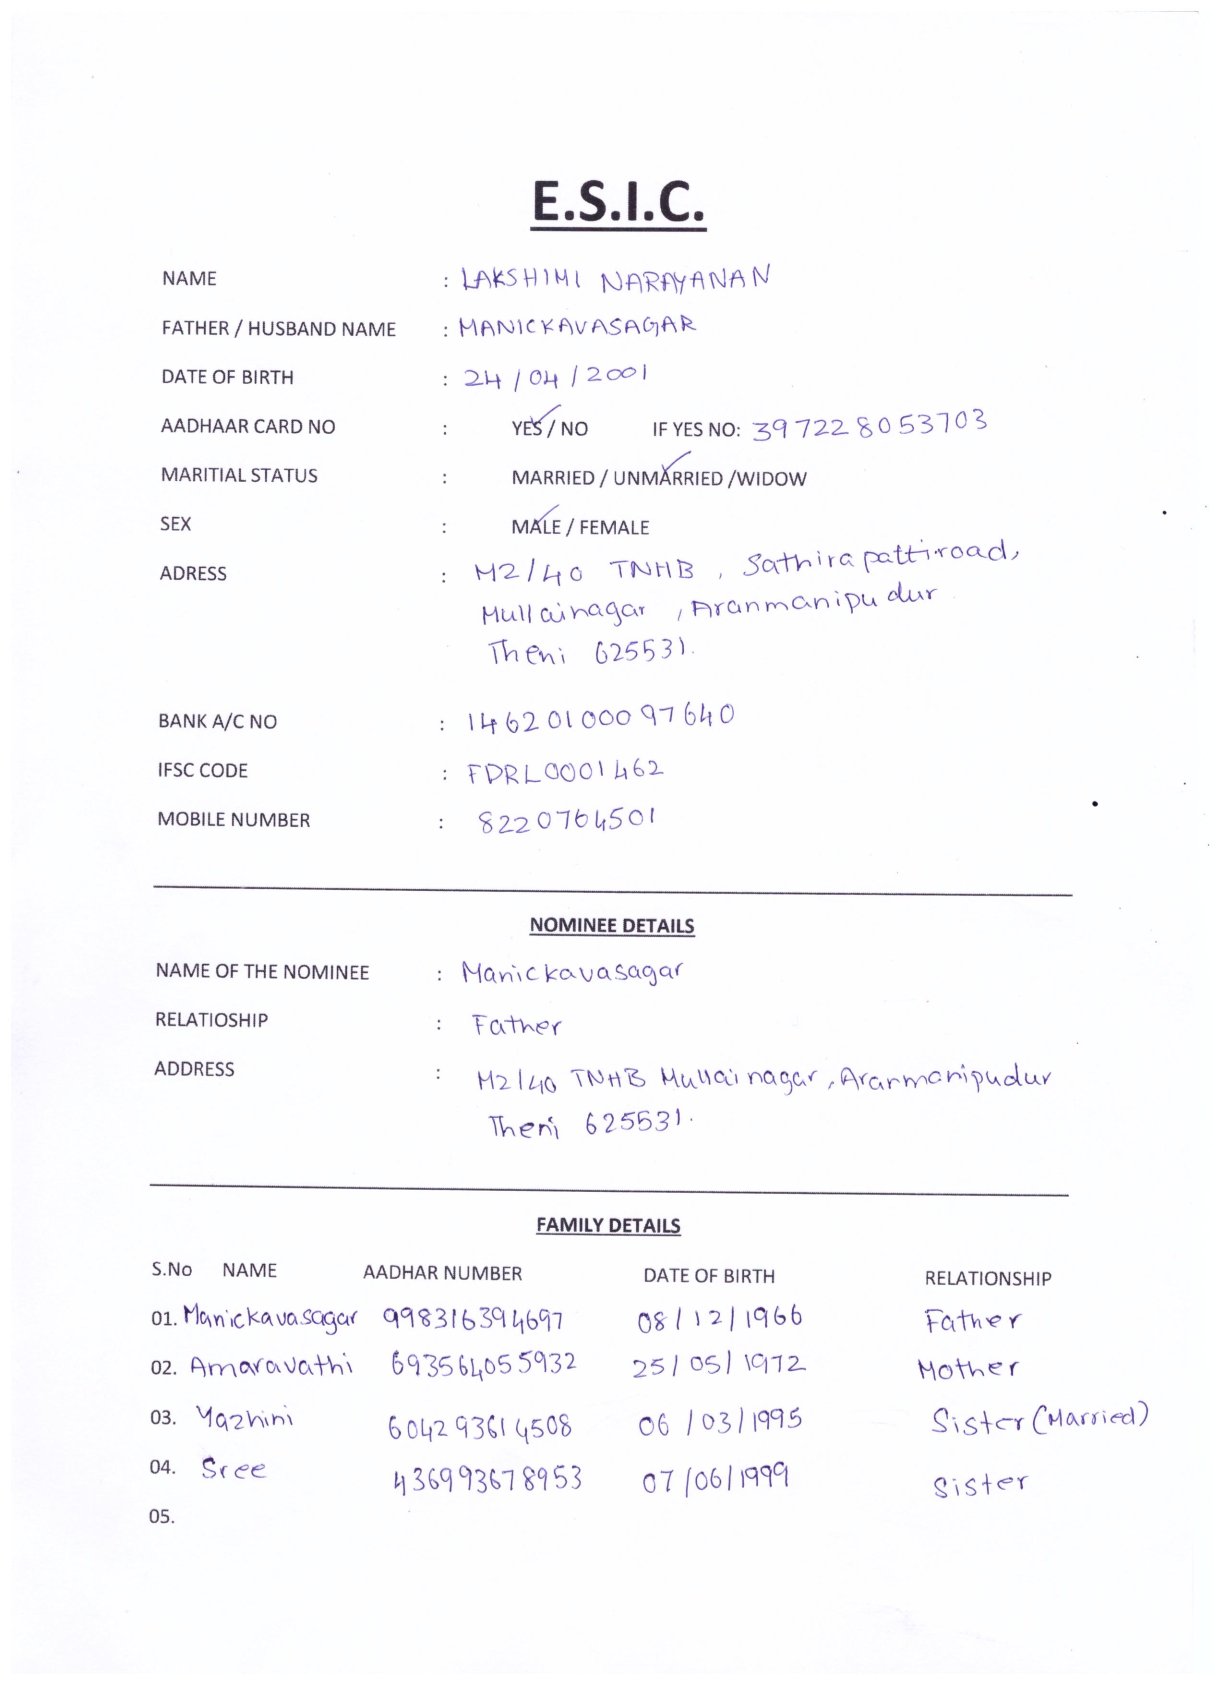 E.S.I.C.
NAME : LAKSHIMI NARAYANAN
FATHER / HUSBAND NAME : MANICKAVASAGAR
DATE OF BIRTH : 24/04/2001
AADHAAR CARD NO : YES / NO IF YES NO: 397228053703
MARITIAL STATUS : MARRIED / UNMARRIED /WIDOW
SEX : MALE / FEMALE
ADRESS : M2/40 TNHB, Sathirapattiroad,
Mullainagar, Aranmanipudur
Theni 625531.
BANK A/C NO : 14620100097640
IFSC CODE : FDRL0001462
MOBILE NUMBER : 8220764501
NOMINEE DETAILS
NAME OF THE NOMINEE : Manickavasagar
RELATIOSHIP : Father
ADDRESS : M2/40 TNHB Mullainagar, Aranmanipudur
Theni 625531.
FAMILY DETAILS
S.No NAME AADHAR NUMBER DATE OF BIRTH RELATIONSHIP
01. Manickavasagar 998316394697 08/12/1966 Father
02. Amaravathi 693564055932 25/05/1972 Mother
03. Yazhini 604293614508 06/03/1995 Sister (Married)
04. Sree 436993678953 07/06/1999 Sister
05.